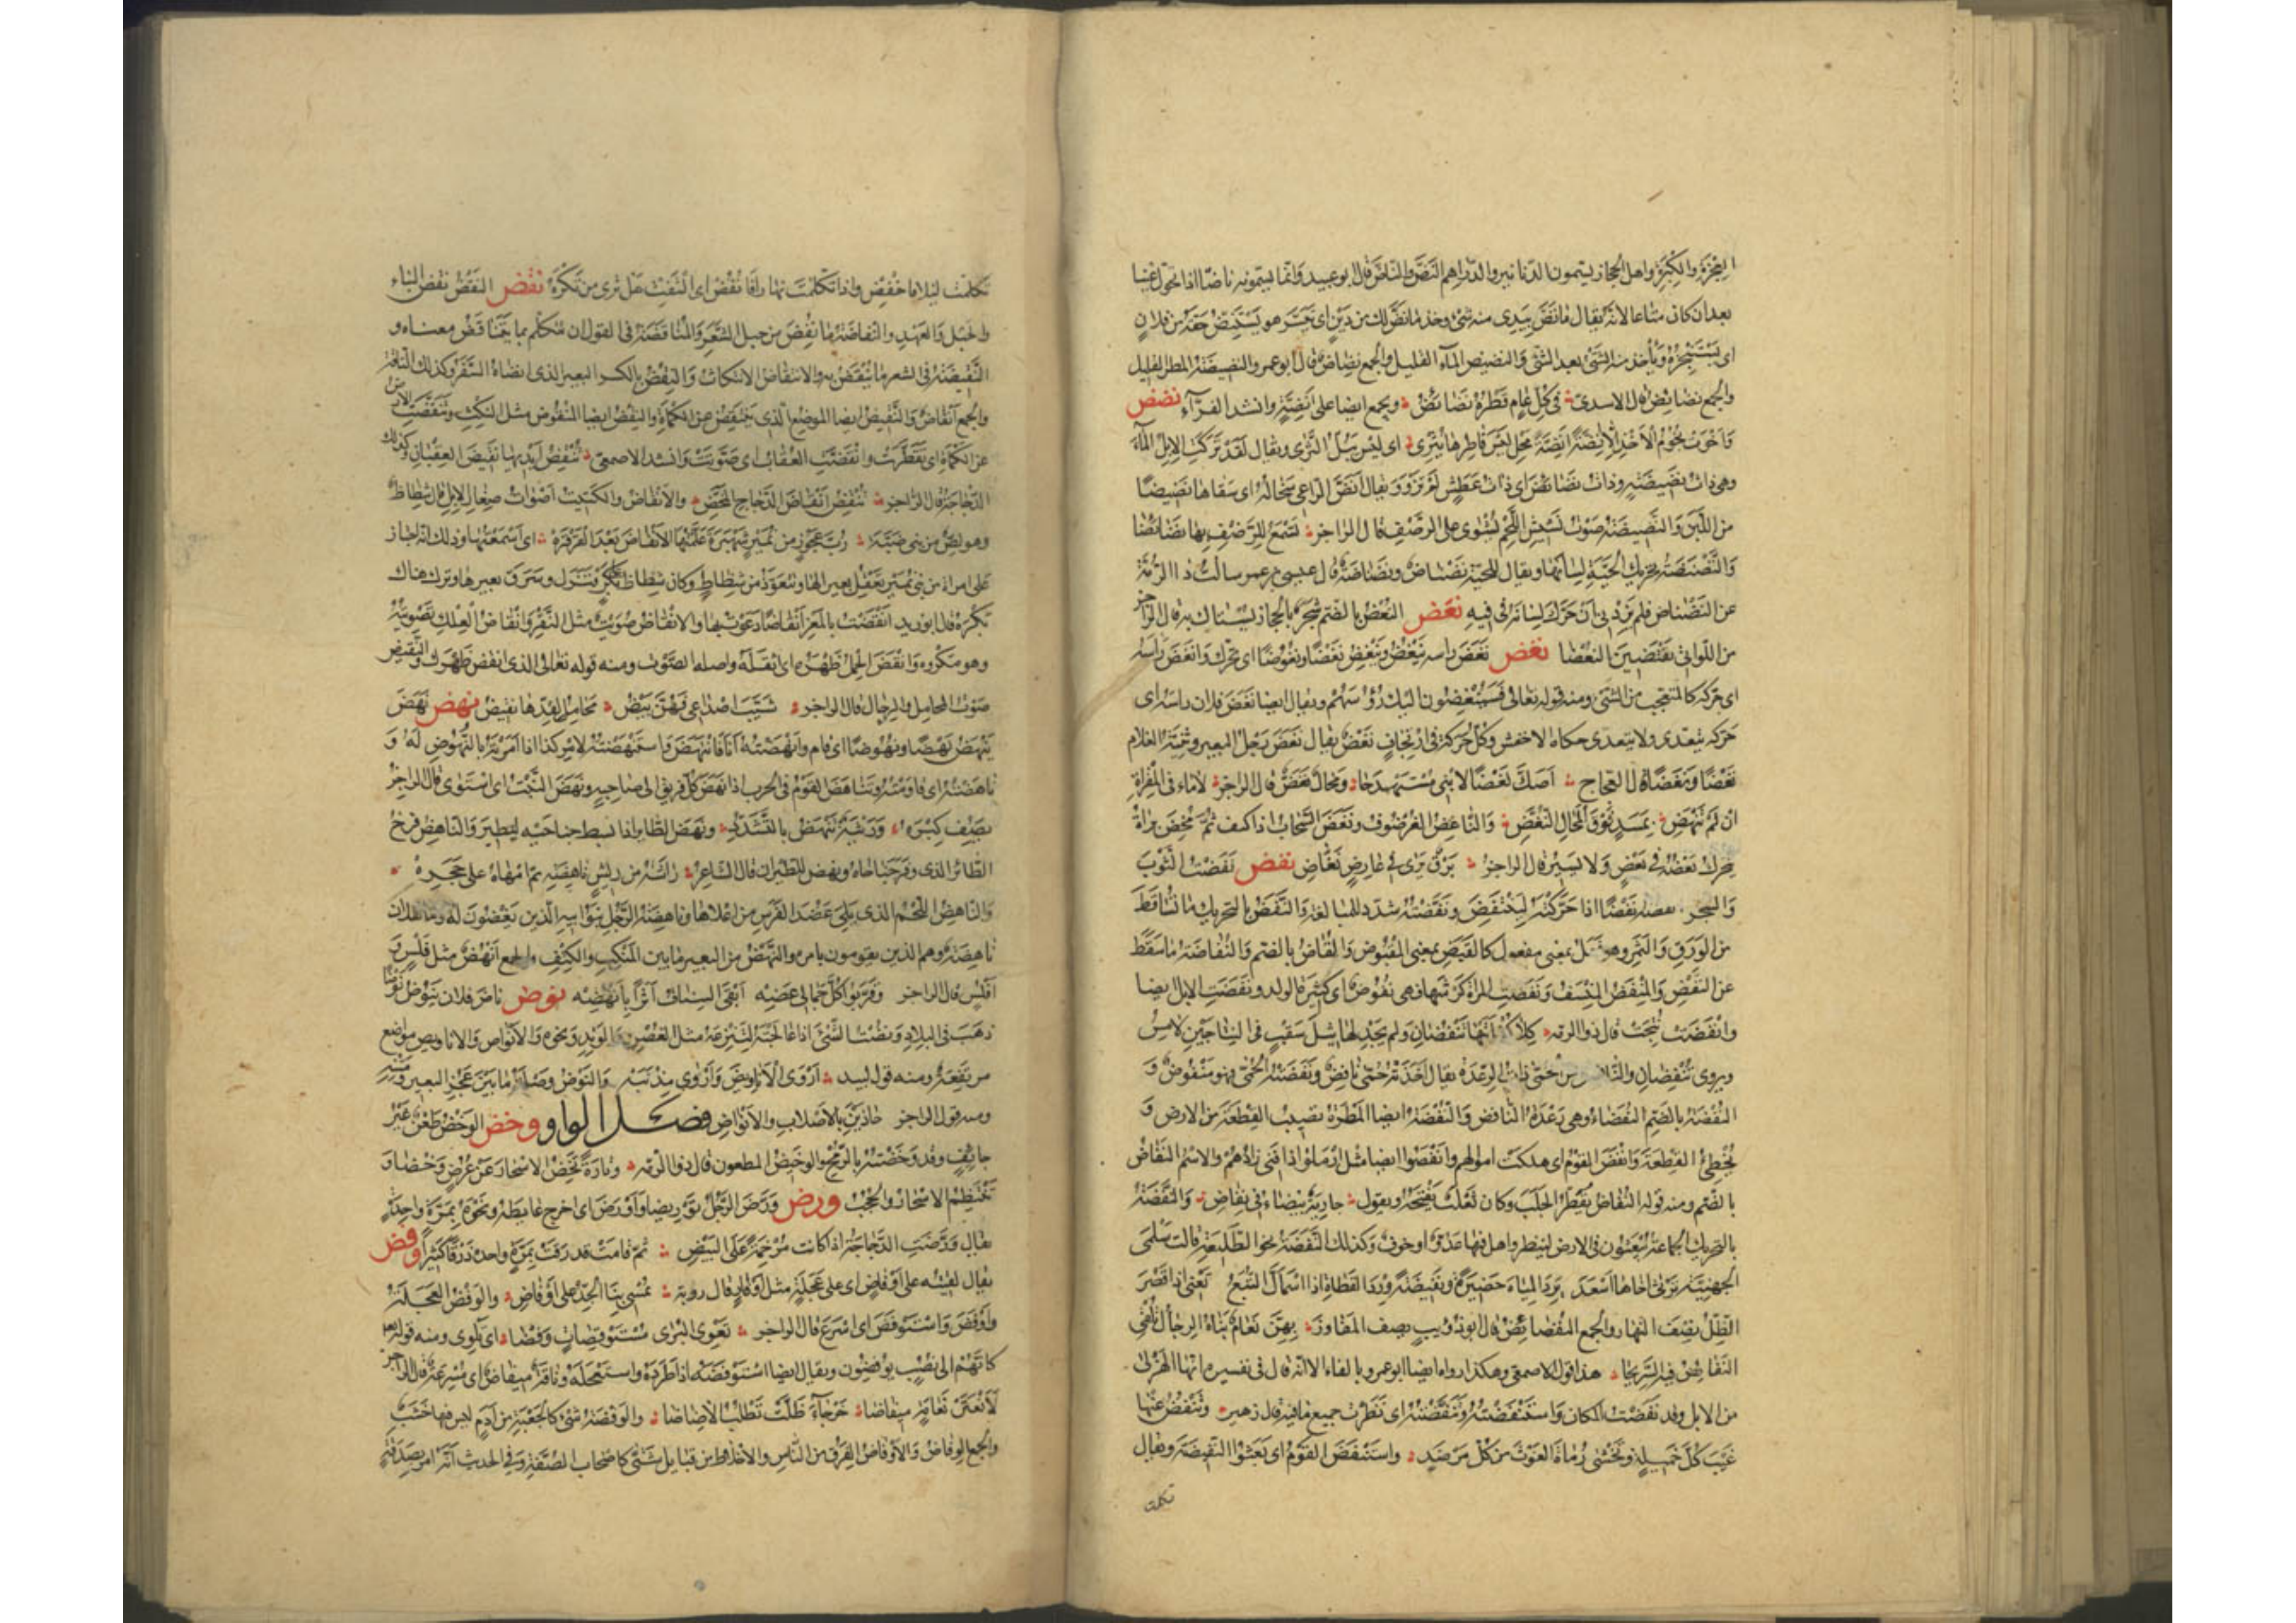 العجزة والكبرة واهل الحجاز يسمون الدنانير والدراهم النضّ والناضّ قال ابو عبيد وانما يسمونه ناضّا اذا تحول عينا
بعد ان كان متاعا لانه يقال ما نضّ بيدى منه شئ وخذ ما نضّ لك من دين اى تيسّر هو يستنضّ حقه من فلان
اى يستنجزه وياخذ منه الشئ بعد الشئ والنضيض الماء القليل والجمع نضاض قال ابو عمرو والنضيضة المطر القليل
والجمع نضائض قال الاسدى فى كل عام قطره نضائض ويجمع ايضا على انضّة وانشد الفراء نضض
واخوت نجوم الاخذ الا انضّة انضّة محل ليس قاطرها يثرى اى ليس يبلّ الثرى ويقال لقد تركت الابل الماء
وهى ذات نضيضة وذات نضائض اى ذات عطش لم ترو ويقال انضّ الراعى سخاله اى سقاها نضيضا
من اللبن والنضيضة صوت نشيش اللحم يشوى على الرضف قال الراجز تسمع للرضف بها نضائضا
والنضنضة تحريك الحية لسانها ويقال للحية نضناض ونضناضة قال عيسى بن عمر سالت ذا الرمة
عن النضناض فلم يزدنى ان حرّك لسانه فى فيه نعض النعض بالضم شجر بالحجاز يستاك به قال الراجز
من اللواتى يقتضبن النعضا نغض نغض راسه ينغض وينغض نغضا ونغوضا اى تحرك وانغض راسه
اى حركه كالمتعجب من الشئ ومنه قوله تعالى فسينغضون اليك رؤسهم ويقال ايضا نغض فلان راسه اى
حركه يتعدى ولا يتعدى حكاه الاخفش وكل حركة فى ارتجاف نغض يقال نغض رحل البعير وثنية الغلام
نغضا ونغضانا قال العجاج اصكّ نغضا لا ينى مستهدجا ومحال نغض قال الراجز لا ماء فى المقراة
ان لم تنهض بمسد فوق المحال النغض والناغض الغرضوف ونغض السحاب اذا كثف ثم مخض تراه
يتحرك بعضه فى بعض ولا يسير قال الراجز برق ترى فى عارض نغاض نفض نفضت الثوب
والشجر نفضا اذا حركته لينتفض ونفّضته شدد للمبالغة والنفض بالتحريك ما تساقط
من الورق والثمر وهو فعل بمعنى مفعول كالقبض بمعنى المقبوض والنفاض بالضم والنفاضة ما سقط
عن النفض والمنفض المنسف ونفضت المراة كرشها فهى نفوض اى كثيرة الولد ونفضت الابل ايضا
وانفضت نتجت قال ذو الرمة كلا كفأتيها تنفضان ولم يجد لها ثيل سقب فى النتاجين لامس
ويروى تنفضان والنافض من الحمى ذات الرعدة يقال اخذته حمى نافض ونفضته الحمى فهو منفوض و
النفضة بالضم النفضاء وهى رعدة النافض والنفضة ايضا المطرة تصيب القطعة من الارض و
تخطئ القطعة وانفض القوم اى هلكت اموالهم وانفضوا ايضا مثل ارملوا اذا فنى زادهم والاسم النفاض
بالضم ومنه قوله النفاض يقطّر الجلب وكان ثعلب يفتحه ويقول جارية بيضاء فى نفاض والنفضة
بالتحريك الجماعة يبعثون فى الارض لينظروا هل فيها عدو او خوف وكذلك النفيضة نحو الطليعة قالت سلمى
الجهنية ترثى اخاها اسعد يرد المياه حضيرة ونفيضة ورد القطاة اذا اسمألّ التبّع تعنى اذا قصر
الظل نصف النهار والجمع النفائض قال ابو ذؤيب يصف المفاوز بهن نعام بناه الرجال تلقى
النفائض فيه السريحا هذا قول الاصمعى وهكذا رواه ايضا ابو عمرو بالفاء الا انه قال فى تفسيره انها الهزلى
من الابل وقد نفضت المكان واستنفضته وتنفضته اى نظرت جميع ما فيه قال زهير وتنفض عنها
غيب كل خميلة وتخشى رماة الغوث من كل مرصد واستنفض القوم اى بعثوا النفيضة ويقال
تكلمت
تكلمت ليلا فاخفض واذا تكلمت نهارا فانفض اى التفت هل ترى من تكره نقض النقض نقض البناء
والحبل والعهد والنقاضة ما نقض من حبل الشعر والمناقضة فى القول ان يتكلم بما يتناقض معناه و
النقيضة فى الشعر ما ينقض به والانتقاض الانتكاث والنقض بالكسر البعير الذى انضاه السفر وكذلك الناقة
والجمع انقاض والنقض ايضا الموضع الذى ينتقض عن الكماة والنقض ايضا المنقوض مثل النكث وتنقضت الارض
عن الكماة اى تفطرت وانقضت العقاب اى صوتت وانشد الاصمعى تنقض ايديها نقيض العقبان وكذلك
الدجاجة قال الراجز تنقض انقاض الدجاج المخض والانقاض والكتيت اصوات صغار الابل قال شظاظ
وهو لص من بنى ضبة رب عجوز من نمير شهبرة علمتها الانقاض بعد القرقرة اى اسمعتها وذلك انه اجتاز
على امراة من بنى نمير تعقل بعيرا لها وتتعوذ من شظاظ وكان شظاظ على بكر فنزل وسرق بعيرها وترك هناك
بكره قال ابو زيد انقضت بالمعز انقاضا دعوت بها والانقاض صويت مثل النقر وانقاض العلك تصويته
وهو مكروه وانقض الحمل ظهره اى اثقله واصله الصوت ومنه قوله تعالى الذى انقض ظهرك والنقيض
صوت المحامل والرحال قال الراجز شيّب اصداغى فهن بيض محامل لقدّها نقيض نهض نهض
ينهض نهضا ونهوضا اى قام وانهضته انا فانتهض واستنهضته لامر كذا اذا امرته بالنهوض له و
ناهضته اى قاومته وتناهض القوم فى الحرب اذا نهض كل فريق الى صاحبه ونهض النبت اى استوى قال الراجز
يصف كبره ورثية تنهض بالتشدد ونهض الطائر اذا بسط جناحيه ليطير والناهض فرخ
الطائر الذى وفر جناحاه ونهض للطيران قال الشاعر راشه من ريش ناهضة ثم امهاه على حجره
والناهض اللحم الذى يلى عضد الفرس من اعلاها وناهضة الرجل بنو ابيه الذين يغضبون له وما لفلان
ناهضة وهم الذين يقومون بامره والنهض من البعير ما بين المنكب والكتف والجمع انهض مثل فلس و
افلس قال الراجز وقربوا كل جمالى عضه ابقى السناف اثرا بانهضه نوض ناض فلان ينوض نوضا
ذهب فى البلاد ونضت الشئ اذا عالجته لتنزعه مثل الغصن والوتد ونحوه والانواض والاناويض مواضع
مرتفعة ومنه قول لبيد اروى الاناويض واروى مذنبه والنوض وصلة ما بين عجز البعير ومتنه
ومنه قول الراجز جاذبن بالاصلاب والانواض فصل الواو وخض الوخض طعن غير
جائف وقد وخضته بالرمح والوخيض المطعون قال ذو الرمة وتارة تخض الاسحار عن عرض وخضا و
تنتظم الاسحار والحجب ورض ورّض الرجل توريضا واورض اى اخرج غائطه ونحوه بمرة واحدة
يقال ورضت الدجاجة اذا كانت مرخمة على البيض ثم قامت فذرقت بمرة واحدة ذرقا كثيرا وفض
يقال لقيته على اوفاض اى على عجلة مثل اوفاز قال رؤبة تمشى بنا الجد على اوفاض والوفض العجلة
واوفض واستوفض اى اسرع قال الراجز تعوى البرى مستوفضات وفضا اى تلوى ومنه قوله تعالى
كانهم الى نصب يوفضون ويقال ايضا استوفضه اذا طرده واستعجله وناقة ميفاض اى مسرعة قال الراجز
لانعتن نعامة ميفاضا خرجاء ظلت تطلب الاضاضا والوفضة شئ كالجعبة من ادم ليس فيها خشب
والجمع الوفاض والاوفاض الفرق من الناس والاخلاط من قبايل شتى كاصحاب الصفة وفى الحديث انه امر بصدقة